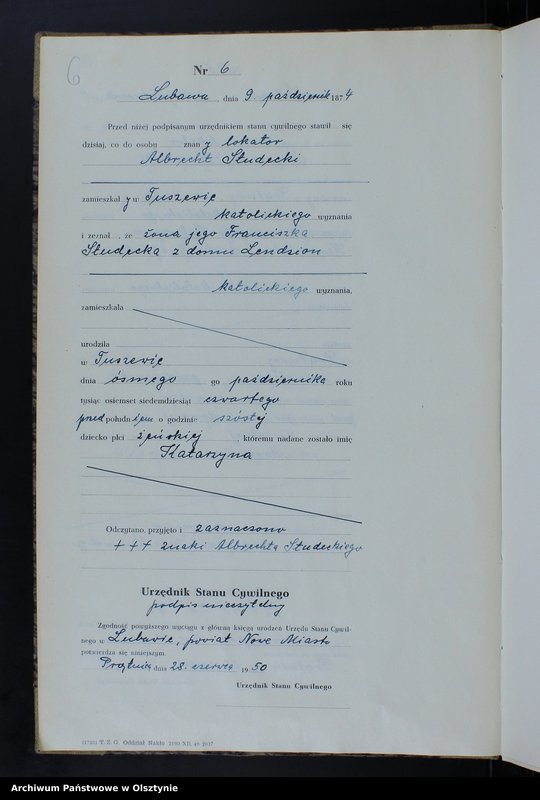 6
Nr 6
Lubawa, dnia 9. październik 1874
Przed niżej podpisanym urzędnikiem stanu cywilnego stawił się
dzisiaj, co do osoby znany lokator
Albrecht Studecki
zamieszkały w Tuszewie
katolickiego wyznania
i zeznał, że żona jego Franciszka
Studecka z domu Lendzion
katolickiego wyznania,
zamieszkała
urodziła
w Tuszewie
dnia ósmego go października roku
tysiąc osiemset siedemdziesiąt czwartego
przed południem o godzinie szóstej
dziecko płci żeńskiej, któremu nadane zostało imię
Katarzyna
Odczytano, przyjęto i zaznaczono
+++ znaki Albrechta Studeckiego
Urzędnik Stanu Cywilnego
podpis nieczytelny
Zgodność powyższego wyciągu z główną księgą urodzeń Urzędu Stanu Cywil-
nego w Lubawie, powiat Nowe Miasto
potwierdza się niniejszym.
dnia 28. czerwca 1950
Urzędnik Stanu Cywilnego
T. Z. G. Oddział Nakło
Archiwum Państwowe w Olsztynie